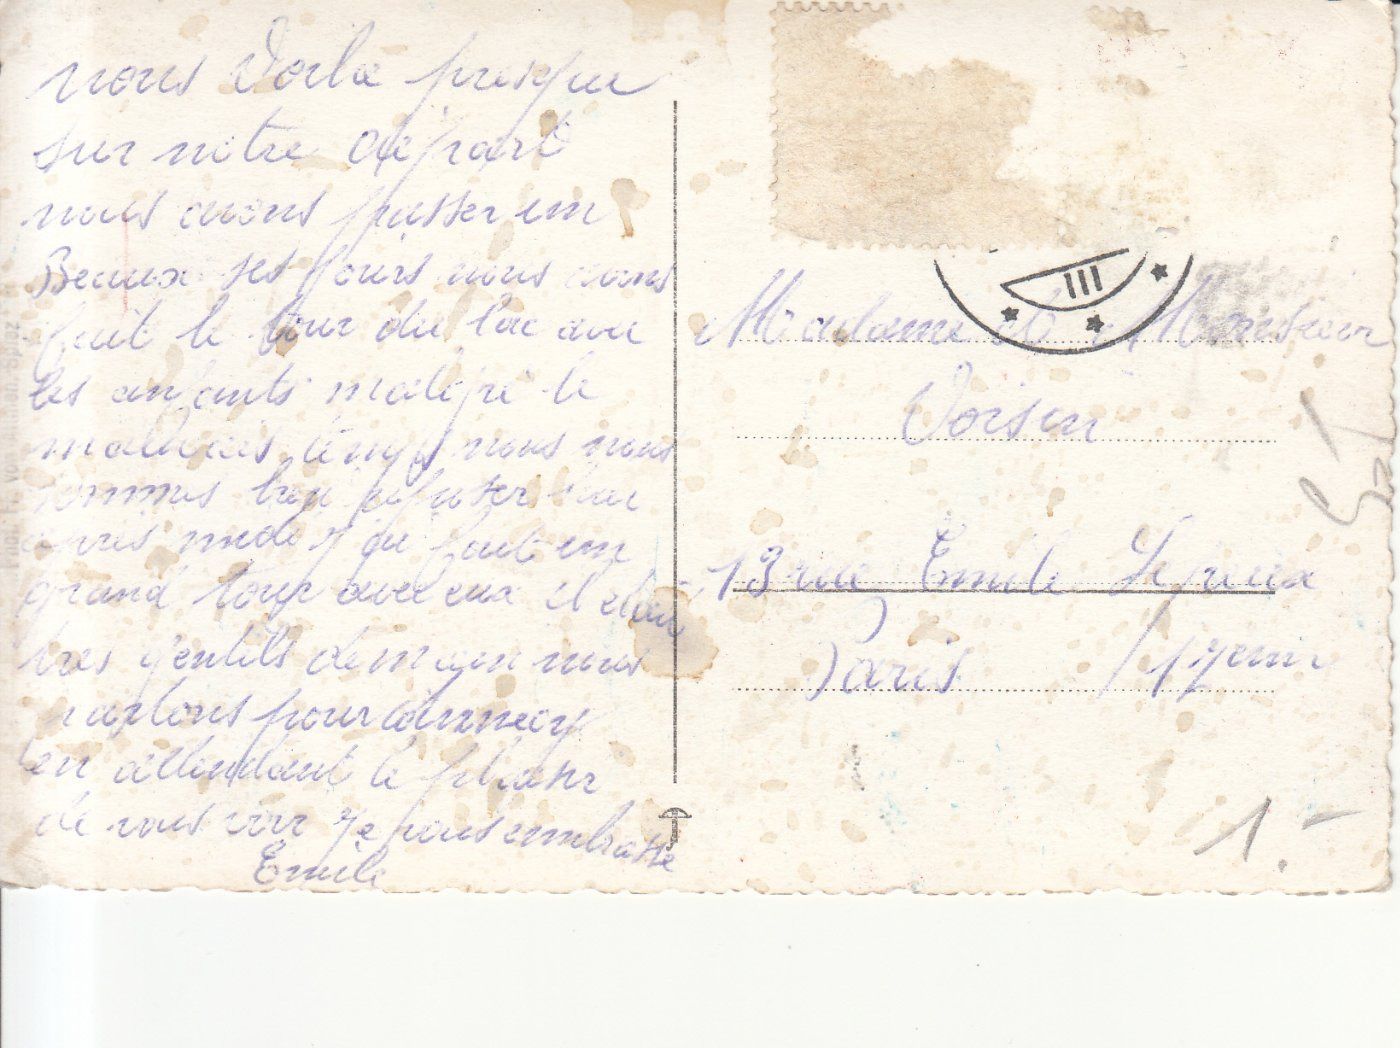 nous Voila presque
sur notre départ
nous avons passer um
Beaux ses jours nous avons
fait le tour du lac avec
les anfants malgré le
mauvais temps nous nous
sommes bien
midi j'ai fait um
grand tour avec eux il étais
tres gentils demain nous
partons pour annecy
en attendant le plaisir
de vous voir je vous embrasse
Emile
III
Madame et Monsieur
Voisin
13 rue Emile Lepeux
Paris /17eme
1.-